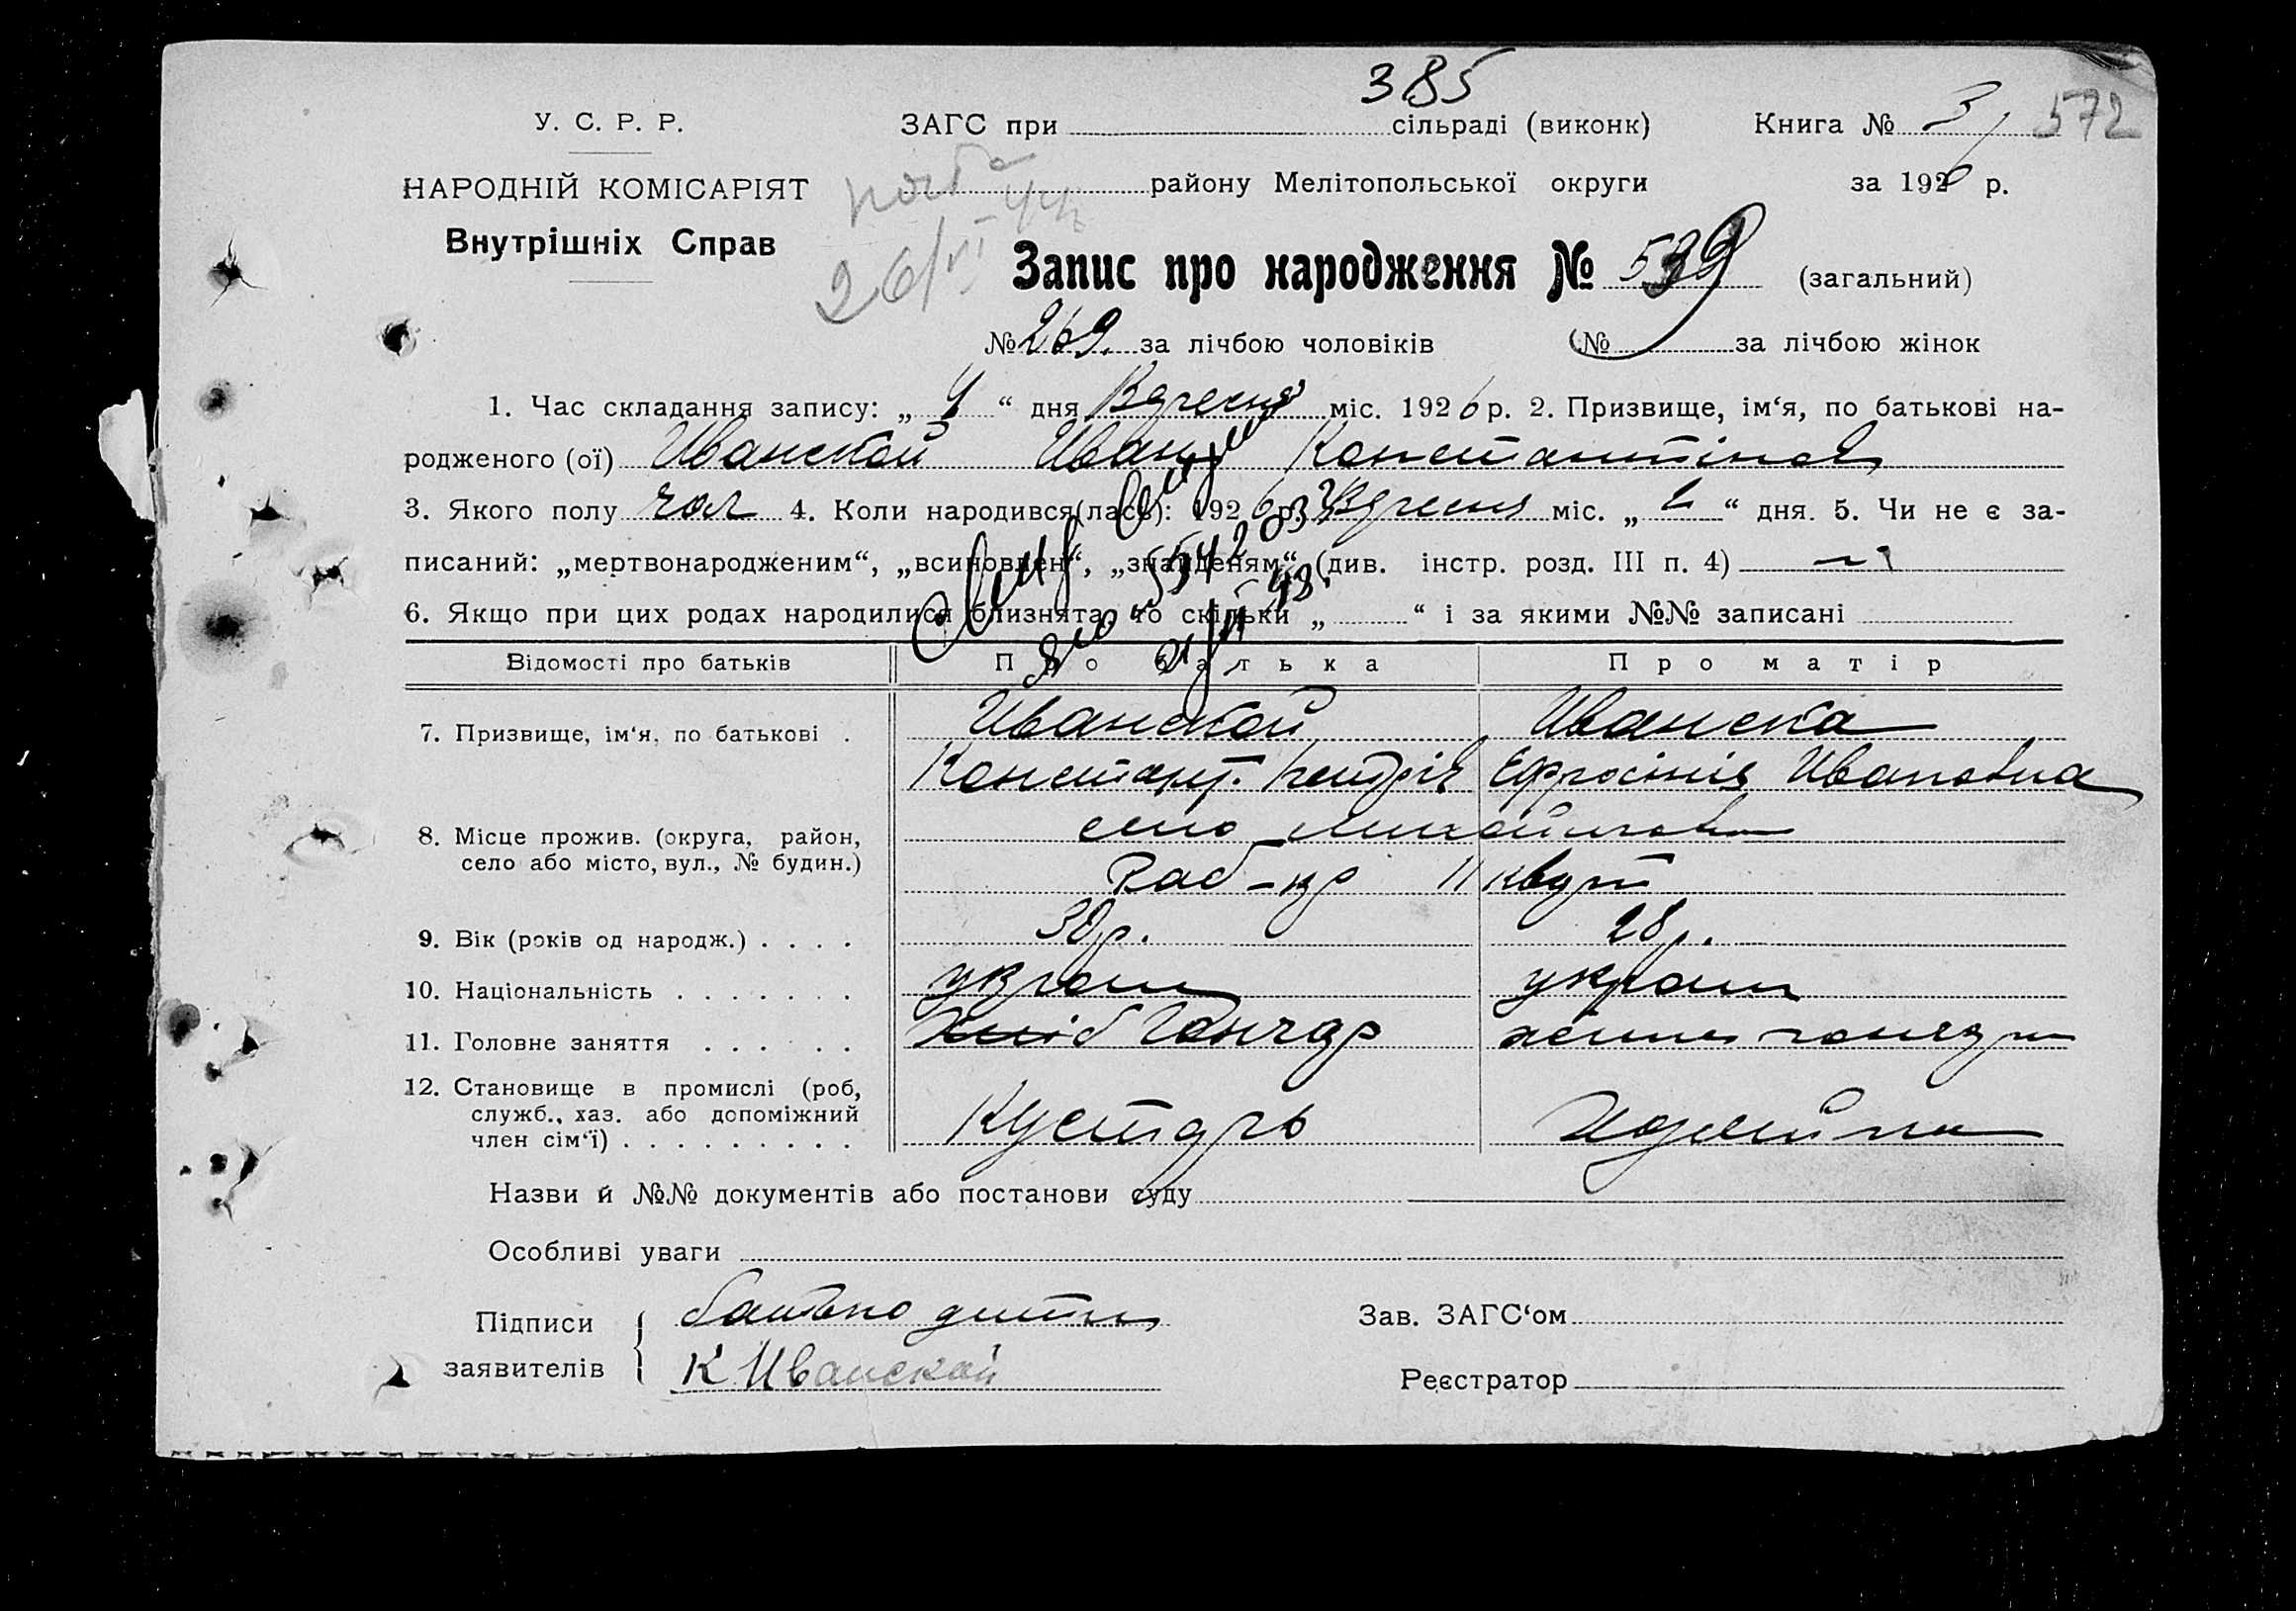 385
У. С. Р. Р. ЗАГС при сільраді (виконк) Книга № 3/ 572
НАРОДНІЙ КОМІСАРІЯТ району Мелітопольської округи за 1926 р.
Внутрішніх Справ
26/VI
Запис про народження № 539 (загальний)
№ 269. за лічбою чоловіків № за лічбою жінок
1. Час складання запису: „ 4 “ дня Вересня міс. 1926 р. 2. Призвище, ім‘я, по батькові на-
родженого (ої) Иванской Иван Константінов
3. Якого полу чол 4. Коли народився(лась): 1926 р. Вересня міс. „ 2 “ дня. 5. Чи не є за-
писаний: „мертвонародженим“, „всиновлен“, „знайденям“ (див. інстр. розд. III п. 4)
6. Якщо при цих родах народилися близнята, то скільки „ “ і за якими №№ записані
Відомості про батьків Про батька Про матір
7. Призвище, ім‘я, по батькові . Иванской Иванска
Констант. Кендрів Ефросінія Ивановна
8. Місце прожив. (округа, район, село Михайловка
село або місто, вул., № будин.) 11
9. Вік (років од народж.) . . . . 38р. 28р.
10. Національність . . . . . . . україн україн
11. Головне заняття . . . . . Гончар
12. Становище в промислі (роб,
служб., хаз. або допоміжний Кустарь
член сім‘ї) . . . . . . . . .
Назви й №№ документів або постанови суду
Особливі уваги
Підписи батько дитини Зав. ЗАГС‘ом
заявителів К Иванской Реєстратор